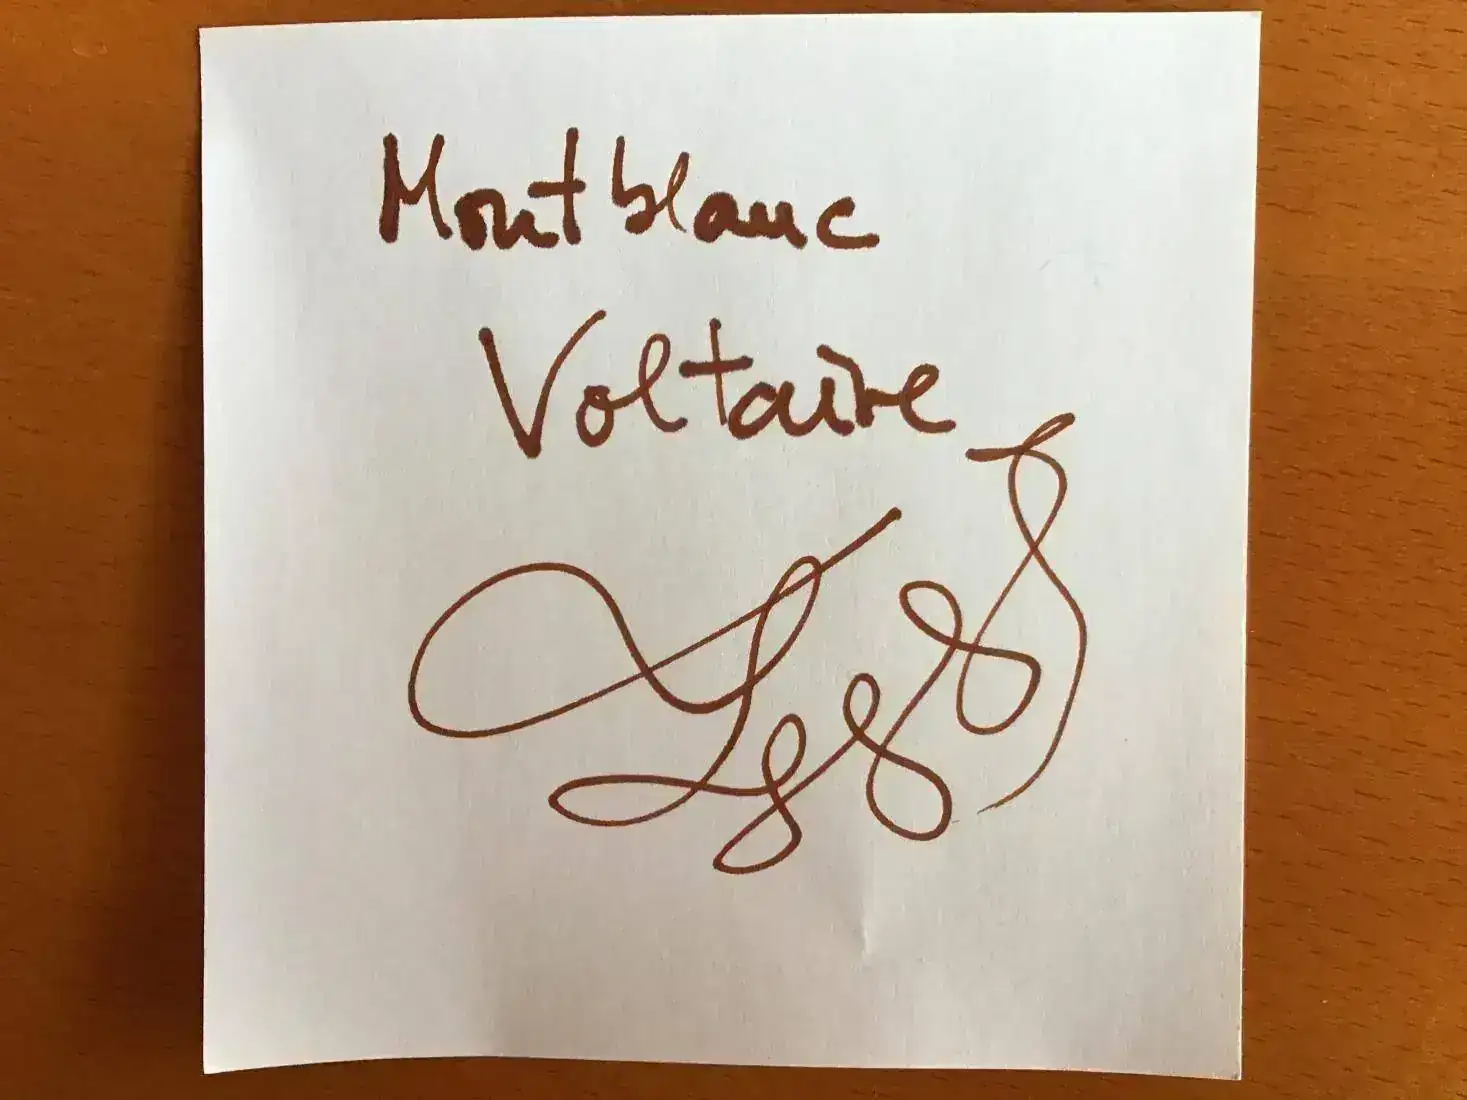 Montblanc
Voltaire